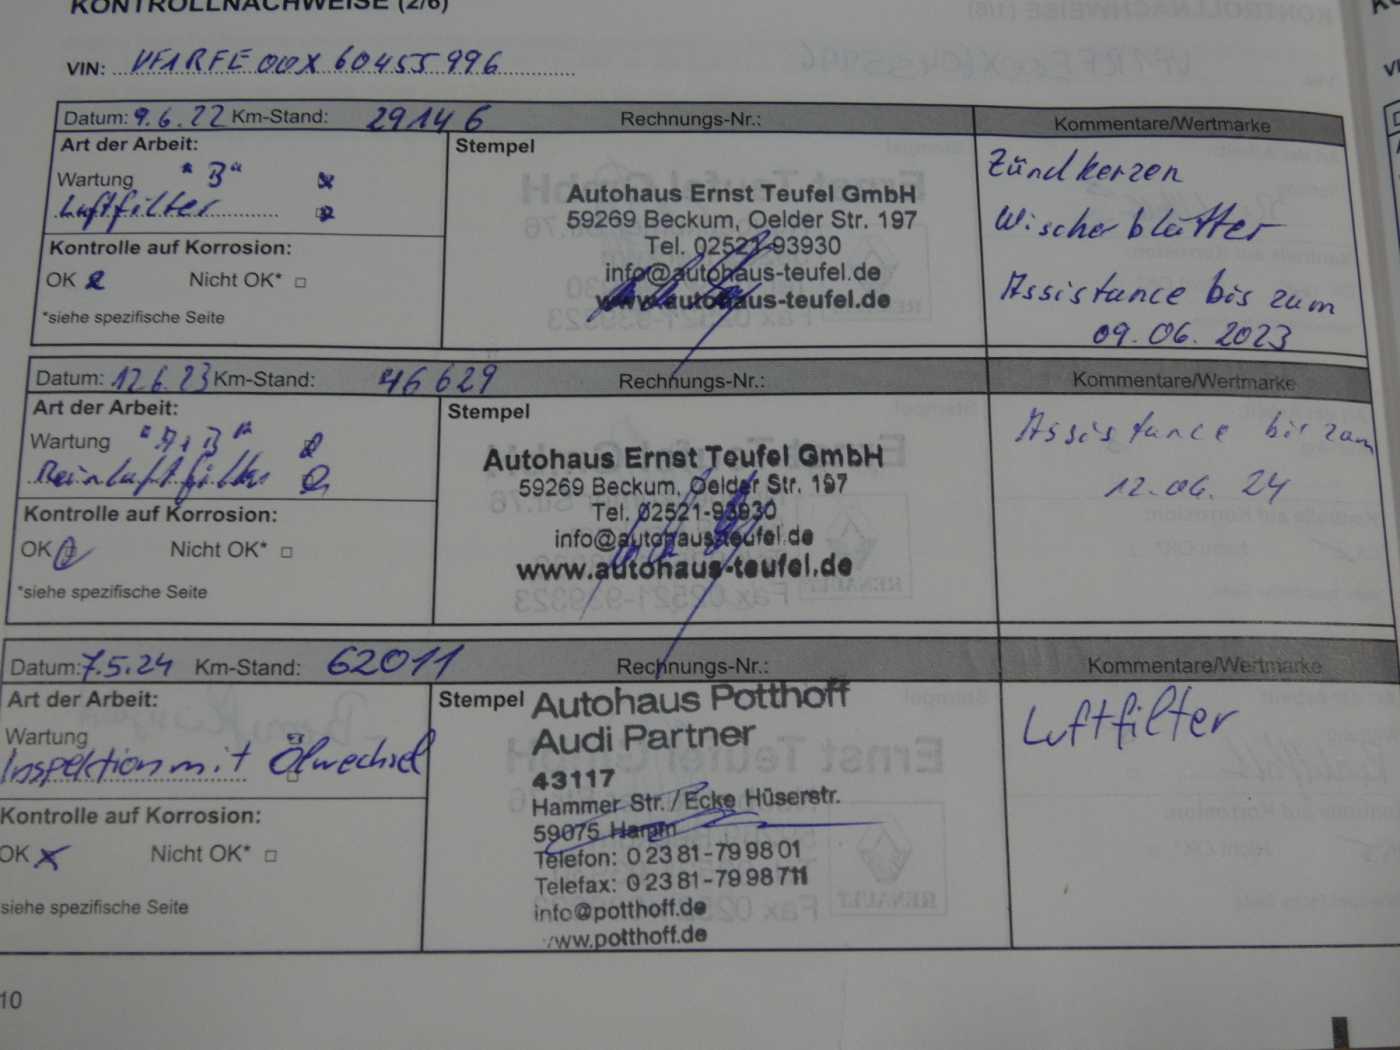 KONTROLLNACHWEISE (2/6)
VIN: VF1RFE00X60455996
Datum: 9.6.22 Km-Stand: 29146 Rechnungs-Nr.: Kommentare/Wertmarke
Art der Arbeit:
Wartung "B"
Luftfilter
Kontrolle auf Korrosion:
OK Nicht OK*
*siehe spezifische Seite
Stempel
Autohaus Ernst Teufel GmbH
59269 Beckum, Oelder Str. 197
Tel. 02521-93930
info@autohaus-teufel.de
www.autohaus-teufel.de
Zündkerzen
Wischerblätter
Assistance bis zum
09.06.2023
Datum: 12.6.23 Km-Stand: 46629 Rechnungs-Nr.: Kommentare/Wertmarke
Art der Arbeit:
Wartung "A+B"
Reinluftfilter
Kontrolle auf Korrosion:
OK Nicht OK*
*siehe spezifische Seite
Stempel
Autohaus Ernst Teufel GmbH
59269 Beckum, Oelder Str. 197
Tel. 02521-93930
info@autohaus-teufel.de
www.autohaus-teufel.de
Assistance bis zum
12.06.24
Datum: 7.5.24 Km-Stand: 62011 Rechnungs-Nr.: Kommentare/Wertmarke
Art der Arbeit:
Wartung
Inspektion mit Ölwechsel
Kontrolle auf Korrosion:
OK Nicht OK*
siehe spezifische Seite
Stempel
Autohaus Potthoff
Audi Partner
43117
Hammer Str./Ecke Hüserstr.
59075 Hamm
Telefon: 0 23 81-79 98 01
Telefax: 0 23 81-79 98 711
info@potthoff.de
www.potthoff.de
Luftfilter
10